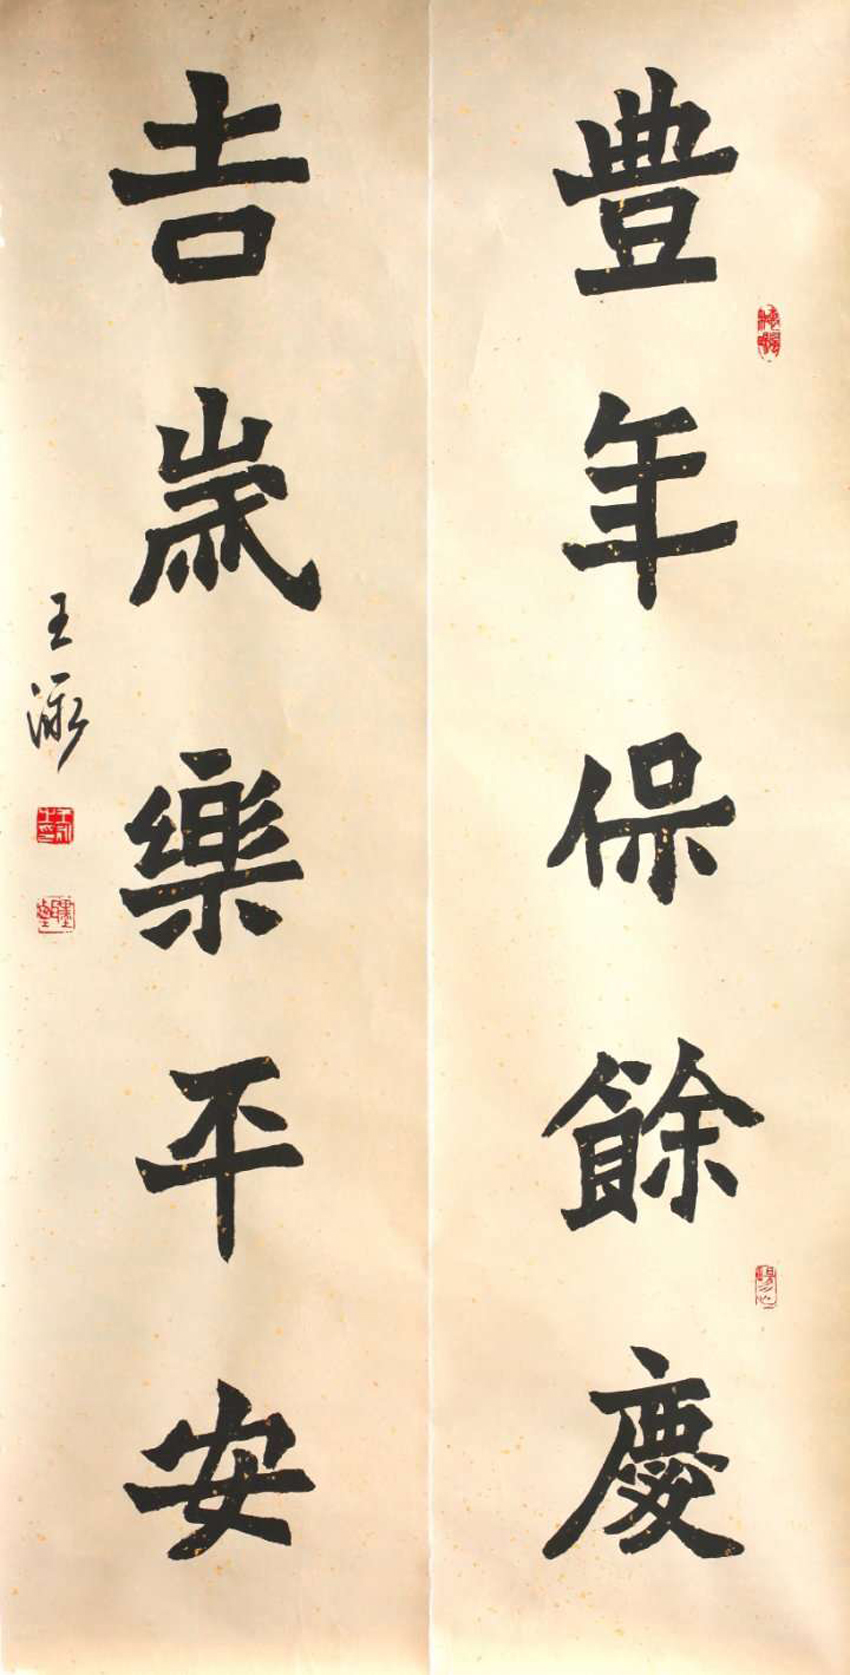 豊年保餘慶
吉嵗樂平安
王